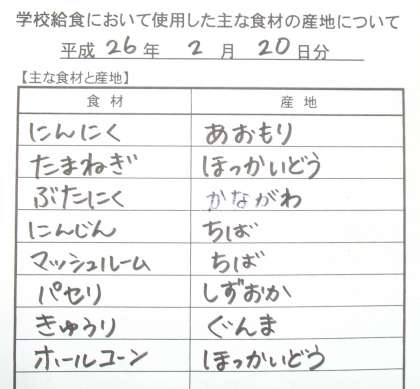 学校給食において使用した主な食材の産地について
平成 26 年 2 月 20 日分
【主な食材と産地】
食材 産地
にんにく あおもり
たまねぎ ほっかいどう
ぶたにく かながわ
にんじん ちば
マッシュルーム ちば
パセリ しずおか
きゅうり ぐんま
ホールコーン ほっかいどう